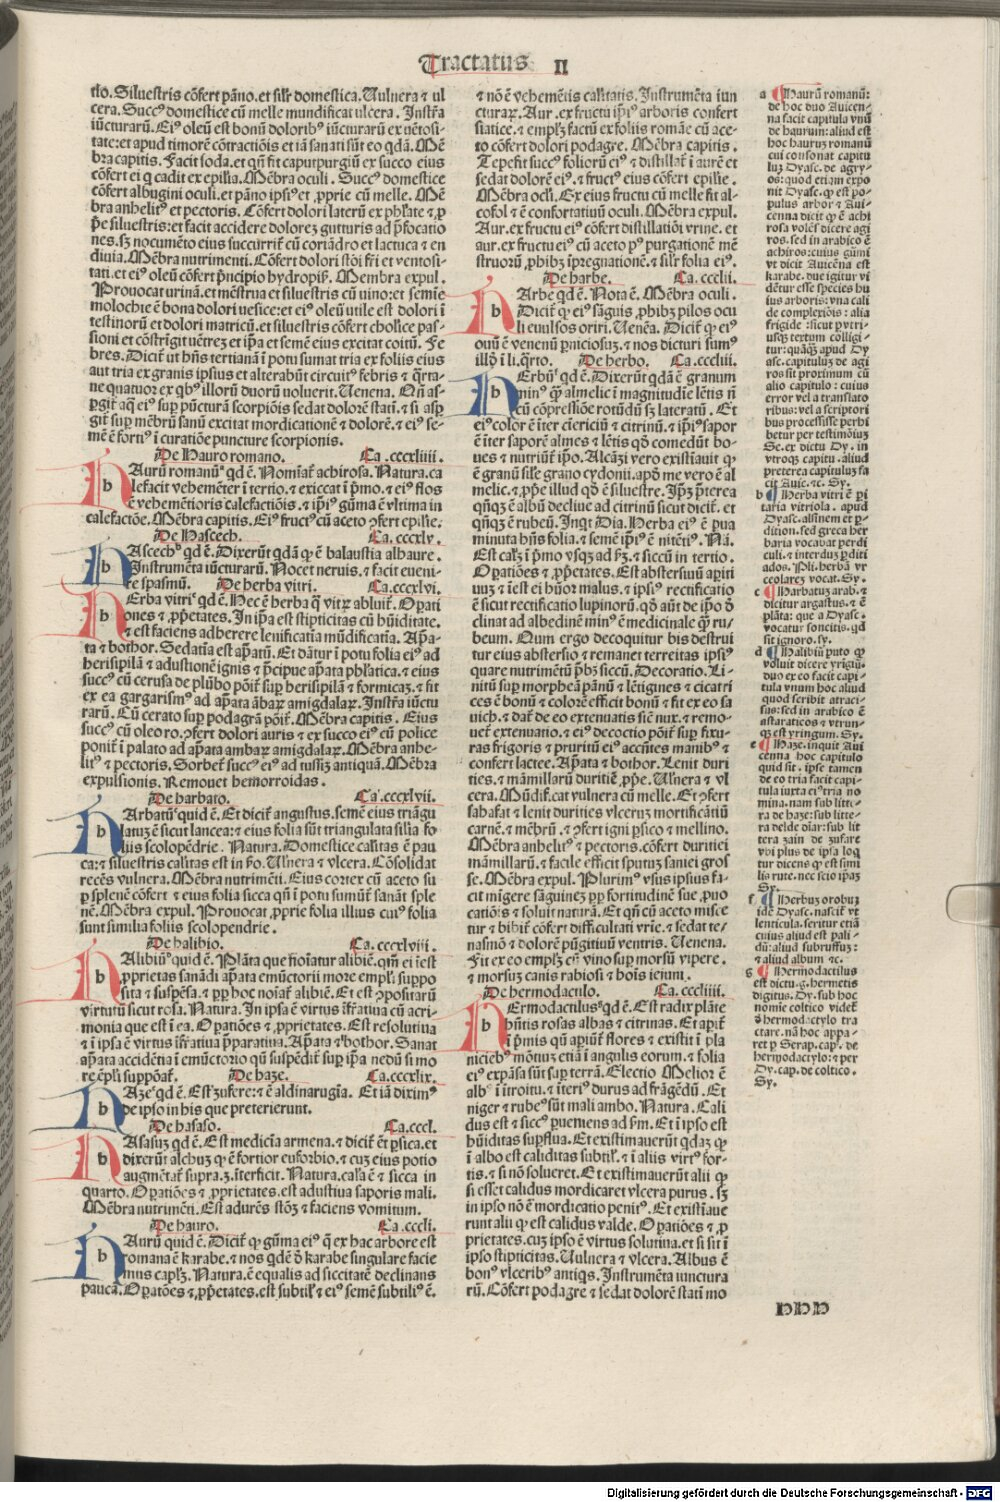 Tractatus II
tło. Siluestris cõfert pãno. et silr̃ domestica. Uulnera ⁊ ul
cera. Succꝰ domestice cũ melle mundificat ulcera. Instr̃a
iũcturarũ. Eiꝰ oleũ est bonũ doloribꝰ iũcturarũ ex uẽtosi-
bra capitis. Facit soda. et qñ fit caputpurgiũ ex succo eius
cõfert ei q cadit ex epilia. Mẽbra oculi. Succꝰ domestice
cõfert albugini oculi. et pãno ipsiꝰ et ꝓprie cũ melle. Mẽ
bra anhelitꝰ et pectoris. Cõfert dolori laterũ ex phlate ⁊ ꝓ
p̃e siluestris: et facit accidere dolorez gutturis ad p̃focatio
nes. sꝫ nocumẽto eius succurrit᷑ cũ coriãdro et lactuca et en
diuia. Mẽbra nutrimenti. Cõfert dolori stõi fri᷑ et uentosi-
tati. et eiꝰ oleũ cõfert p̃ncipio hydropiꝭ. Membra expul.
Prouocat urinã. et mẽstrua et siluestris cũ uino: et semie
molochie ẽ bona dolori uesice: et eiꝰ oleũ utile est dolori ĩ
testinorũ et dolori matricũ. et siluestris cõfert cholice pas-
sioni et cõstrigit uẽtrez et ip̃a et semẽ eius excitat coitũ. Fe
bres. Dicit᷑ ut hñs tertianã ĩ potu sumat tria ex foliis eius
aut tria ex granis ipsius et alterabũt circuitꝰ febris ⁊ q̃rta-
ne quatuor ex qbꝰ illorũ duorũ uoluerit. Uenena. Qñ as-
ꝑgit᷑ aq̃ eiꝰ suꝑ pũcturã scorpiõis sedat dolorẽ statĩ. ⁊ si asꝑ
git᷑ suꝑ mẽbrũ sanũ excitat mordicationẽ ⁊ dolorẽ. ⁊ eiꝰ se-
mẽ ẽ fortiꝰ ĩ curatiõe puncture scorpionis.
De Hauro romano. Ca. cccxliiii.
HAurũ romanũᵃ qd ẽ. Nomĩat᷑ achirosa. Natura. ca
lefacit vehemẽter ĩ tertio. ⁊ exiccat ĩ p̃mo. ⁊ eiꝰ flos
ẽ vehemẽtioris calefactiõis. ⁊ ip̃iꝰ gũma ẽ vltima in
calefactõe. Mẽbra capitis. Eiꝰ fructꝰ cũ aceto ꝯfert epilie.
De Hascech. Ca. cccxlv.
HAscechᵇ qd ẽ. Dixerũt qdã ꝙ ẽ balaustia alhaure.
Instrumẽta iũcturarũ. Nocet neruis. ⁊ facit eueni-
re spasmũ. De herba vitri. Ca. cccxlvi.
HErba vitriᶜ qd ẽ. Hec ẽ herba q̃ vitrꝫ abluit. Oꝑati
ones ⁊ ꝓp̃etates. In ip̃a est stipticitas cũ hũiditate.
⁊ est faciens adherere lenificatĩa mũdificatĩa. Ap̃a-
ta ⁊ bothor. Sedatĩa est ap̃atũ. Et dãtur ĩ potu folia eiꝰ ad
herisipilã ⁊ adustionẽ ignis ⁊ p̃cipue ap̃ata phlatica. ⁊ eius
succꝰ cũ cerusa de plũbo põit᷑ suꝑ herisipilã ⁊ formicaꝫ. ⁊ fit
ex ea gargarismꝰ ad ap̃ata ãbaꝝ amigdalaꝝ. Instr̃a iũctu
rarũ. Cũ cerato suꝑ podagrã põit᷑. Mẽbra capitis. Eius
succꝰ cũ oleo ro. ꝯfert dolori auris ⁊ ex succo eiꝰ cũ police
ponit᷑ ĩ palato ad ap̃ata ambaꝝ amigdalaꝝ. Mẽbra anhe-
litꝰ ⁊ pectoris. Sorbet᷑ succꝰ eiꝰ ad tussiz antiquã. Mẽbra
expulsionis. Remouet hemorroidas.
De harbato. Ca. cccxlvii.
HArbatũᶜ quid ẽ. Et dicit᷑ angustus. semẽ eius triãgu
latuꝫ ẽ sicut lancea: ⁊ eius folia sũt triangulata silĩa fo
liis scolopẽdrie. Natura. Domestice calitas ẽ pau
ca: ⁊ siluestris calitas est in ẜo. Ulnera ⁊ vlcera. Cõsolidat
recẽs vulnera. Mẽbra nutrimẽti. Eius cortex cũ aceto su
ꝑ splenẽ cõfert ⁊ eius folia sicca qñ ĩ potu sumũt᷑ sanãt sple
nẽ. Mẽbra expul. Prouocat ꝓprie folia illius cuiꝰ folia
sunt similia foliis scolopendrie.
De halibio. Ca. cccxlviii.
HAlibiũᵈ quid ẽ. Plãta que noĩatur alibiẽ. qm̃ ei ĩest
ꝓprietas sanãdi ap̃ata emũctorii more emplꝭ suppo
sita ⁊ suspẽsa. ⁊ ꝓp hoc noĩat᷑ alibiẽ. Et est ꝯpositarũ
virtutũ sicut rosa. Natura. In ipsa ẽ virtus ĩfr̃atiua cũ acri-
monia que est ĩ ea. Oꝑatiões ⁊ ꝓprietates. Est resolutiua
⁊ ĩ ipsa ẽ virtus ĩfr̃atiua p̃paratiua. Ap̃ata ⁊ bothor. Sanat
ap̃ata accidẽtia ĩ emũctorio qñ suspẽdit᷑ suꝑ ip̃a nedũ si mo
re ẽplꝭ suppõat᷑. De haze. Ca. cccxlix.
HAzeᵉ qd ẽ. Est zufere: ⁊ ẽ aldinarugĩa. Et iã diximꝰ
de ipso in his que preterierunt.
De hasaso. Ca. cccl.
HAsasuꝫ qd ẽ. Est medicĩa armena. ⁊ dicit᷑ et p̃sica. et
dixerũt alchuꝫ ꝙ ẽ fortior euforbio. ⁊ cuꝫ eius potio
augmẽtat᷑ supra. ꝫ. iterficit. Natura. calĩa ẽ ⁊ sicca in
quarto. Oꝑatiões ⁊ ꝓprietates. est adustiua saporis mali.
Mẽbra nutrimẽti. Est adurẽs stõꝫ ⁊ faciens vomitum.
De hauro. Ca. cccli.
HAurũ quid ẽ. Dicit᷑ ꝙ gũma eiꝰ q̃ ex hac arbore est
romana ẽ karabe. ⁊ nos qdẽ ð karabe singulare facie
mus caplꝫ. Natura. ẽ equalis ad siccitatẽ declinans
paucã. Oꝑatões ⁊ ꝓp̃etates. est subtilꝭ ⁊ eiꝰ semẽ subtiliꝰ ẽ.
⁊ nõ ẽ vehemẽtis calitatis. Instrumẽta iun
cturaꝝ. Aur. ex fructu ip̃iꝰ arboris confert
sciatice. ⁊ emplꝫ factũ ex foliis romãe cũ ace-
to cõfert dolori podagre. Mẽbra capitis.
Tepefit succꝰ folioꝝ eiꝰ ⁊ distillat᷑ ĩ aurẽ et
sedat dolorẽ eiꝰ. ⁊ fructꝰ eius cõfert epilie.
Mẽbra ocli. Ex eius fructu cũ melle fit al-
cofol ⁊ ẽ confortatiuũ oculi. Mẽbra expul.
Aur. ex fructu eiꝰ cõfert distillatiõi vrine. et
aur. ex fructu eiꝰ cũ aceto pꝰ purgationẽ mẽ
struorũ ꝓhibꝫ ipregnationẽ. ⁊ silr̃ folia eiꝰ.
De harbe. Ca. ccclii.
HArbe qd ẽ. Nota ẽ. Mẽbra oculi.
Dicit᷑ ꝙ eiꝰ sãguis ꝓhibꝫ pilos ocu
li euulsos oriri. Uenẽa. Dicit᷑ ꝙ eiꝰ
ouũ ẽ venenũ p̃niciosuꝫ. ⁊ nos dicturi sumꝰ
illð ĩ li. q̃rto. De herbo. Ca. cccliii.
HErbũᶠ qd ẽ. Dixerũt qdã ẽ granum
minꝰ q̃ almelic ĩ magnitudie lẽtis ñ
cũ cõpressiõe rotũdũ sꝫ lateratũ. Et
eiꝰ color ẽ iter ciericiũ ⁊ citrinũ. ⁊ ip̃iꝰ sapor
ẽ iter saporẽ almes ⁊ lẽtis qð comedũt bo-
ues ⁊ nutriũt᷑ ip̃o. Alcãzi vero existĩauit ꝙ
ẽ granũ sile grano cydonii. apð me vero ẽ al
melic. ⁊ ꝓp̃e illud qð ẽ siluestre. Ip̃ꝫ p̃terea
qñqꝫ ẽ albũ decliue ad citrinũ sicut dicit᷑. et
qñqꝫ ẽ rubeũ. Inqt Dia. Herba eiꝰ ẽ ꝑua
minuta hñs folia. ⁊ semẽ ip̃iꝰ ẽ nitẽtiꝰ. Nã.
Est calꝫ ĩ p̃mo vsqꝫ ad ẜꝫ. ⁊ siccũ in tertio.
Oꝑatiões ⁊ ꝓp̃etates. Est abstersiuũ aꝑiti
uuꝫ ⁊ ĩest ei hũor malus. ⁊ ipsiꝰ rectificatio
ẽ sicut rectificatio lupinorũ. qð aũt de ip̃o ð
clinat ad albedinẽ minꝰ ẽ medicinale q̃ ru-
beum. Qum ergo decoquitur bis destrui
tur eius abstersio ⁊ remanet terreitas ipsiꝰ
quare nutrimẽtũ p̃bꝫ siccũ. Decoratio. Li-
nitũ suꝑ morpheã pãnũ ⁊ lẽtigines ⁊ cicatri
ces ẽ bonũ ⁊ colorẽ efficit bonũ ⁊ fit ex eo sa
uich. ⁊ dat᷑ de eo extenuatis siẽ nux. ⁊ remo-
uet᷑ extenuatio. ⁊ eiꝰ decoctio põit᷑ suꝑ fixu-
ras frigoris ⁊ pruritũ eiꝰ accñtes manibꝰ ⁊
confert lactee. Ap̃ata ⁊ bothor. Lenit duri
ties. ⁊ mãmillarũ duritiẽ ꝓp̃e. Ulnera ⁊ vl
cera. Mũdificat vulnera cũ melle. Et ꝯfert
sahafat ⁊ lenit durities vlceruꝫ mortificãtiũ
carnẽ. ⁊ mẽbrũ. ⁊ ꝯfert igni p̃sico ⁊ mellino.
Mẽbra anhelitꝰ ⁊ pectoris. cõfert duritiei
mãmillarũ. ⁊ facile efficit sputuꝫ saniei gros
se. Mẽbra expul. Plurimꝰ vsus ipsius fa-
cit mĩgere sãguineꝫ ꝓp fortitudinẽ sue ꝓuo
catiõis ⁊ soluit naturã. Et qñ cũ aceto misce
tur ⁊ bibit᷑ cõfert difficultati vrie. ⁊ sedat te-
nasmõ ⁊ dolorẽ pũgitiuũ ventris. Uenena.
Fit ex eo emplꝫ cũ vino suꝑ morsũ vipere.
⁊ morsuꝫ canis rabiosi ⁊ hoĩs ieiuni.
De hermodactulo. Ca. cccliiii.
HErmodactilusᵍ qd ẽ. Est radix plãte
hñtis rosas albas ⁊ citrinas. Et aꝑit᷑
ĩ p̃mis qñ aꝑiũt᷑ flores ⁊ existit ĩ pla
niciebꝰ mõtiuꝫ etiã ĩ angulis eorum. ⁊ folia
eiꝰ expãsa sũt suꝑ terrã. Electio. Melior ẽ
albꝰ ĩ ĩtroitu. ⁊ iteriꝰ durus ad frãgẽdũ. Et
niger ⁊ rubeꝰ sũt mali ambo. Natura. Cali
dus est ⁊ siccꝰ ꝑueniens ad ẜm. Et ĩ ipso est
hũiditas suꝑflua. Et existimauerũt qdaꝫ ꝙ
ĩ albo est caliditas subtilꝭ. ⁊ ĩ aliis virtꝰ for-
tis. ⁊ si nõ solueret. Et existimauerũt alii ꝙ
si esset calidus mordicaret vlcera purus. sꝫ
in ipso nõ ẽ mordicatio penitꝰ. Et existĩaue
runt alii ꝙ est calidus valde. Oꝑatiões ⁊ ꝓ
prietates. cuꝫ ipso ẽ virtus solutiua. et si sit ĩ
ipso stipticitas. Uulnera ⁊ vlcera. Albus ẽ
bonꝰ vlceribꝰ antiqs. Instrumẽta iunctura
rũ. Cõfert podagre ⁊ sedat dolorẽ statĩ mo
a Haurũ romanũ:
de hoc duo Auicen-
na facit capitula vnũ
de haurum: aliud est
hoc haurus romanũ
cui consonat capitu
luꝫ Dyasc. de agry-
os: quod etiam expo
nit Dyasc. ꝙ est po-
pulus arbor ⁊ Aui-
cenna dicit ꝙ ẽ achi
rosa volẽs dicere agi
ros. sed in arabico ẽ
achiros: cuius gũmi
vt dicit Auicẽna est
karabe. due igitur vi
dẽtur esse species hu
ius arboris: vna cali
de complexiõis: alia
frigide: sicut ꝑ vtri-
usqꝫ textum colligi-
tur: quãqꝫ apud Dy
asc. capituluꝫ de agi
ros sit proximum cũ
alio capitulo: cuius
error vel a translato
ribus: vel a scriptori
bus processisse perhi
betur per testimõiuꝫ
Se. ex dictu Dy. in
vtroqꝫ capitu. aliud
preterea capituluꝫ fa
cit Auic. ⁊c. Sy.
b Herba vitri ẽ pi
taria vitriola. apud
Dyasc. alsinem et ꝑ-
dition. sed greca her
baria vocatur perdi
culi. ⁊ interduꝫ ꝑditi
ados. Pli. herbã vr
ceolareꝫ vocat. Sy.
c Harbatuꝫ arab. ⁊
dicitur argastus. ⁊ ẽ
plãta: que a Dyasc.
vocatur soncitis. qð
sit ignoro. sy.
d Halibiũ puto ꝙ
voluit dicere yrigiũ.
duo ex eo facit capi-
tula vnum hoc aliud
quod scribit atraci-
sus: sed in arabico ẽ
astaraticos ⁊ vtrun-
qꝫ est yringum. Sy.
e Haze. inquit Aui
cenna hoc capitulo
quid sit. ipse tamen
de eo tria facit capi-
tula iuxta eiꝰ tria no
mina. nam sub litte-
ra de haze: sub litte-
ra delde diar: sub lit
tera zain de zufare
vbi plus de ipsa loq
tur dicens ꝙ est simi
lis rute. nec scio ipaꝫ
Sy.
f Herbus orobuꝫ
idẽ Dyasc. nascit᷑ vt
lenticula. seritur etiã
cuius aliud est pali-
dũ: aliud subruffuꝫ:
⁊ aliud album ⁊c.
g Hermodactilus
est dictu. g. hermetis
digitus. Dy. sub hoc
nomie coltico videt᷑
ð hermodactylo tra
ctare. nã hoc appa-
ret ꝑ Serap. cap. de
hermodactylo: ⁊ per
Dy. cap. de coltico.
Sy.
DDD
Digitalisierung gefördert durch die Deutsche Forschungsgemeinschaft - DFG